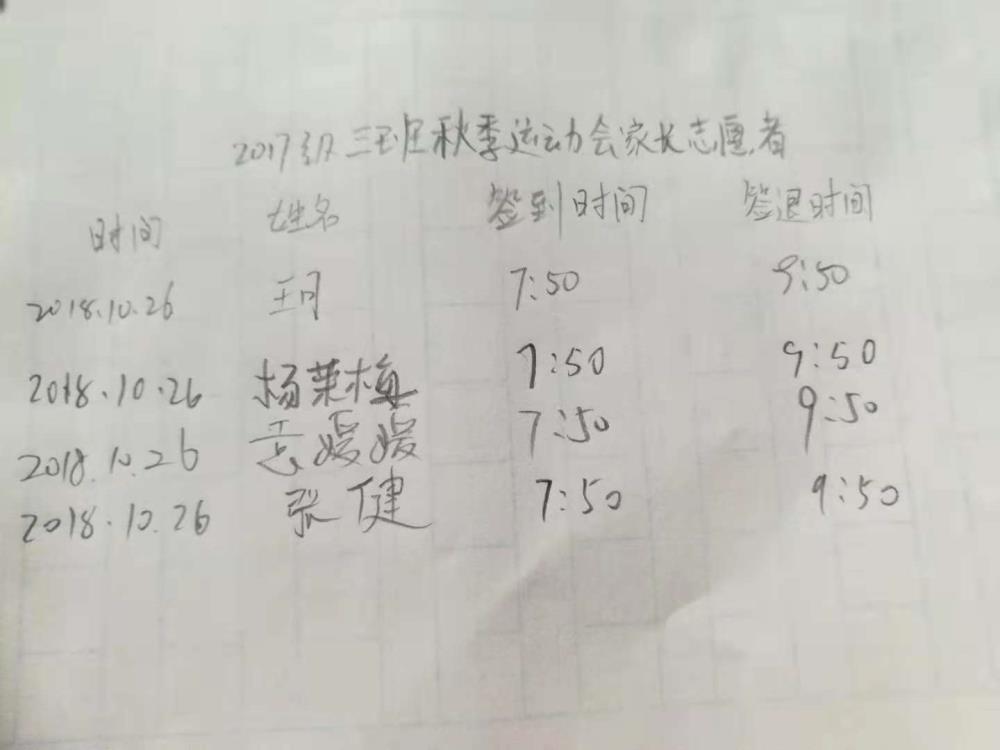 2017级三班秋季运动会家长志愿者
时间 姓名 签到时间 签退时间
2018.10.26 王珂 7:50 9:50
2018.10.26 杨莱梅 7:50 9:50
2018.10.26 媛媛 7:50 9:50
2018.10.26 张健 7:50 9:50